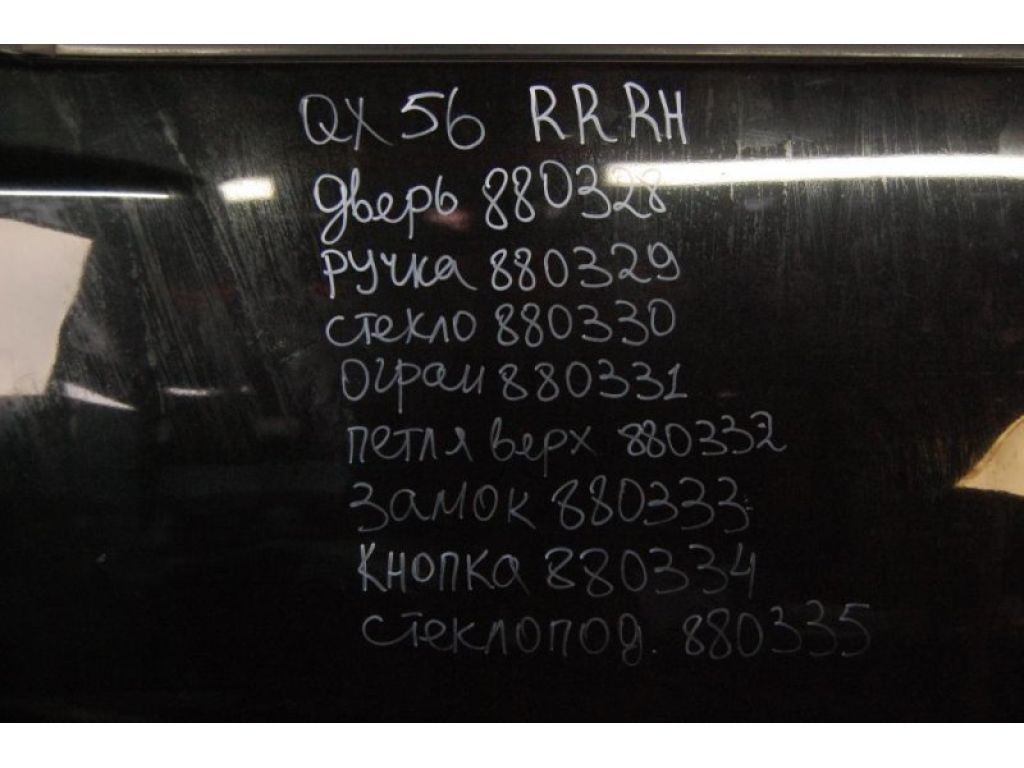 QX 56 RR RH
дверь 880328
ручка 880329
стекло 880330
Огран 880331
петля верх 880332
замок 880333
Кнопка 880334
стеклопод. 880335